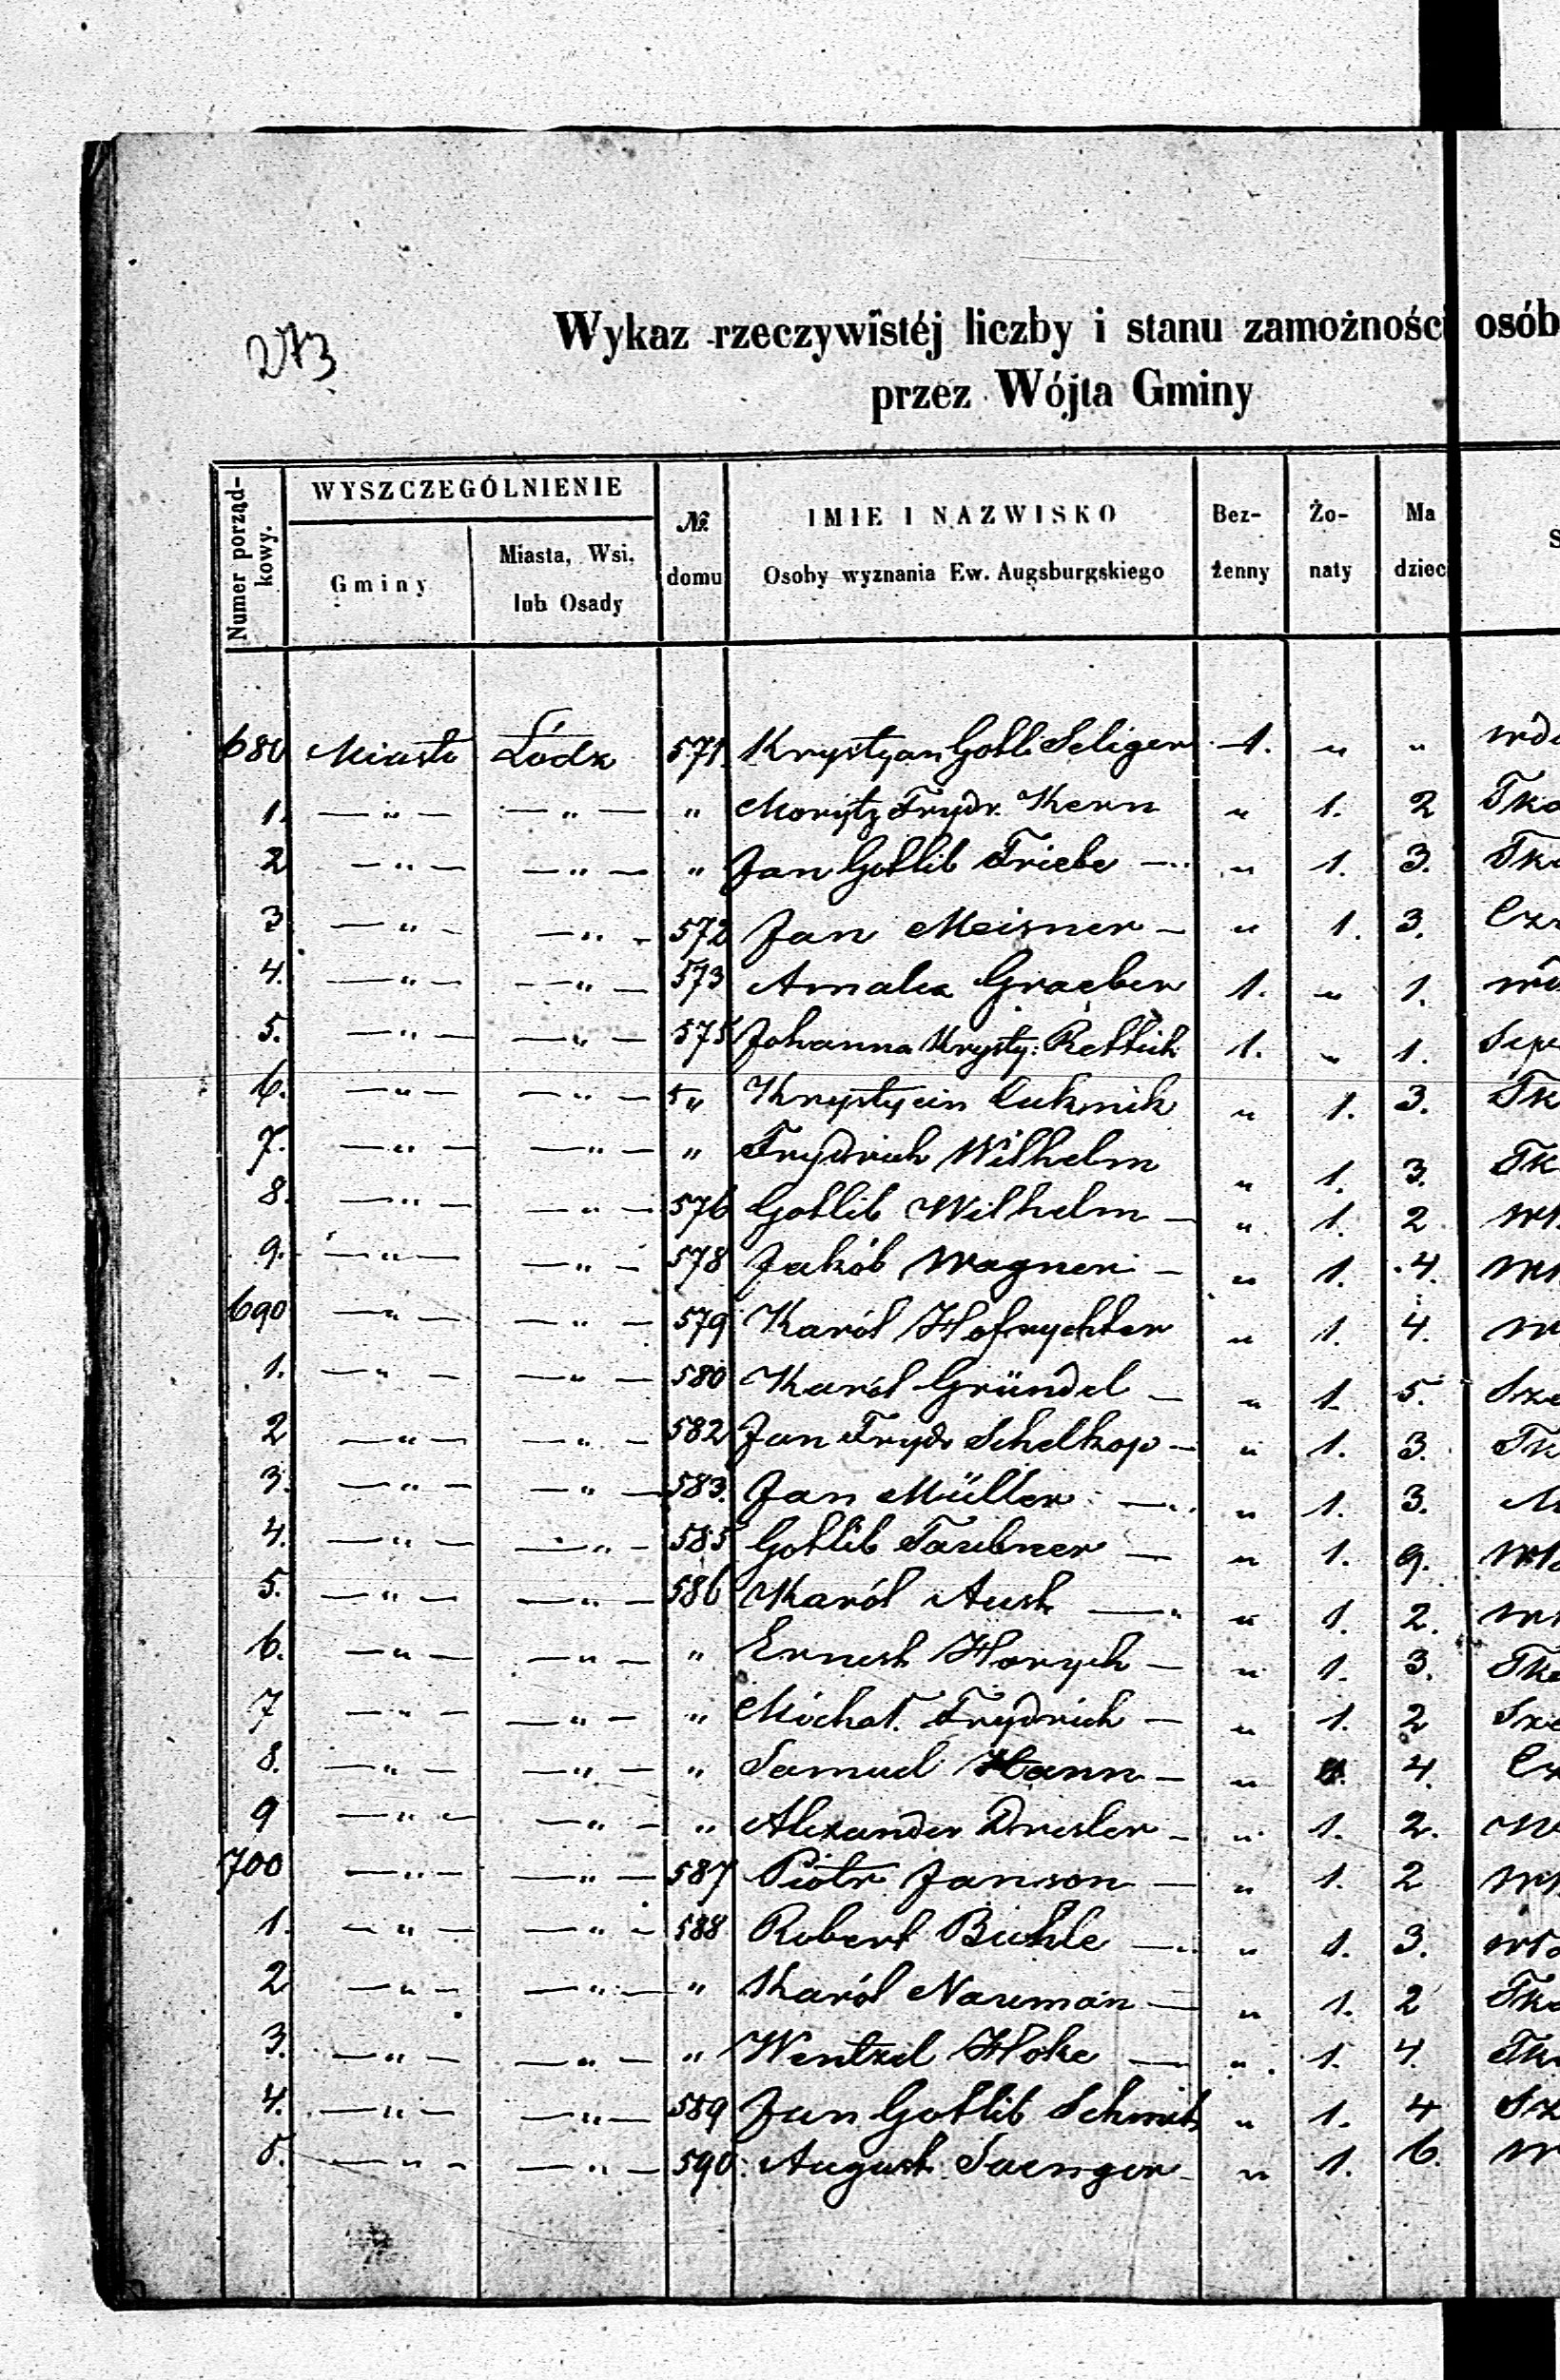 273
Wykaz rzeczywistéj liczby i stanu zamożności osób
przez Wójta Gminy
Numer porząd-
kowy.
WYSZCZEGÓLNIENIE
Gminy
Miasta, Wsi,
lub Osady
№
domu
IMIE I NAZWISKO
Osoby wyznania Ew. Augsburgskiego
Bez-
żenny
Żo-
naty
Ma
dziec
680 Miasto Łódz 571. Krystyan Gotli Seliger 1. " "
1. — " — — " — " Morytz Frydr. Kern " 1. 2
2 — " — — " — " Jan Gottlib Triebe — " 1. 3.
3 — " — — " — 572 Jan Meisner — " 1. 3.
4. — " — — " — 573 Amalia Graeber 1. " 1.
5. — " — — " — 575 Johanna Krysty: Rettich 1. " 1.
6. — " — — " — " Krystyain " 1. 3.
7. — " — — " — " Frydrich Wilhelm " 1. 3.
8. — " — — " — 576 Gotlib Wilhelm — " 1. 2
9. — " — — " — 578 Jakób Wagner — " 1. 4.
690 — " — — " — 579 Karól Hofrychter " 1. 4.
1. — " — — " — 580 Karól Gründel — " 1. 5.
2 — " — — " — 582 Jan Frydr Schelkop — " 1. 3.
3. — " — — " — 583. Jan Müller — " 1. 3.
4. — " — — " — 585 Gotlib Taubner — " 1. 9.
5. — " — — " — 586 Karól Aust — " 1. 2.
6. — " — — " — " Ernest Horych — " 1. 3.
7 — " — — " — " Michał Frydrich — " 1. 2
8. — " — — " — " Samuel Hann — " 1. 4.
9 — " — — " — " Alexander Dresler — " 1. 2.
700 — " — — " — 587 Piotr Janson — " 1. 2
1. — " — — " — 588 Robert Buhle — " 1. 3.
2 — " — — " — " Karól Nauman — " 1. 2
3. — " — — " — " Wentzel Hoke — " 1. 4.
4. — " — — " — 589 Jan Gotlib Schmidt " 1. 4
5. — " — — " — 590. August Saenger — " 1. 6.